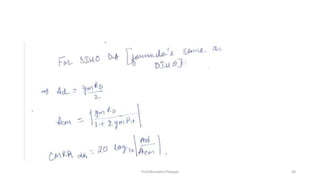 For SIUO DA [formula's same as
DIUO].
→ Ad = gmRD / 2
Acm = | gmRD / 1 + 2gmRs |
CMRR db = 20 log10 | Ad / Acm |.
Prof.Meenakshi Patapat